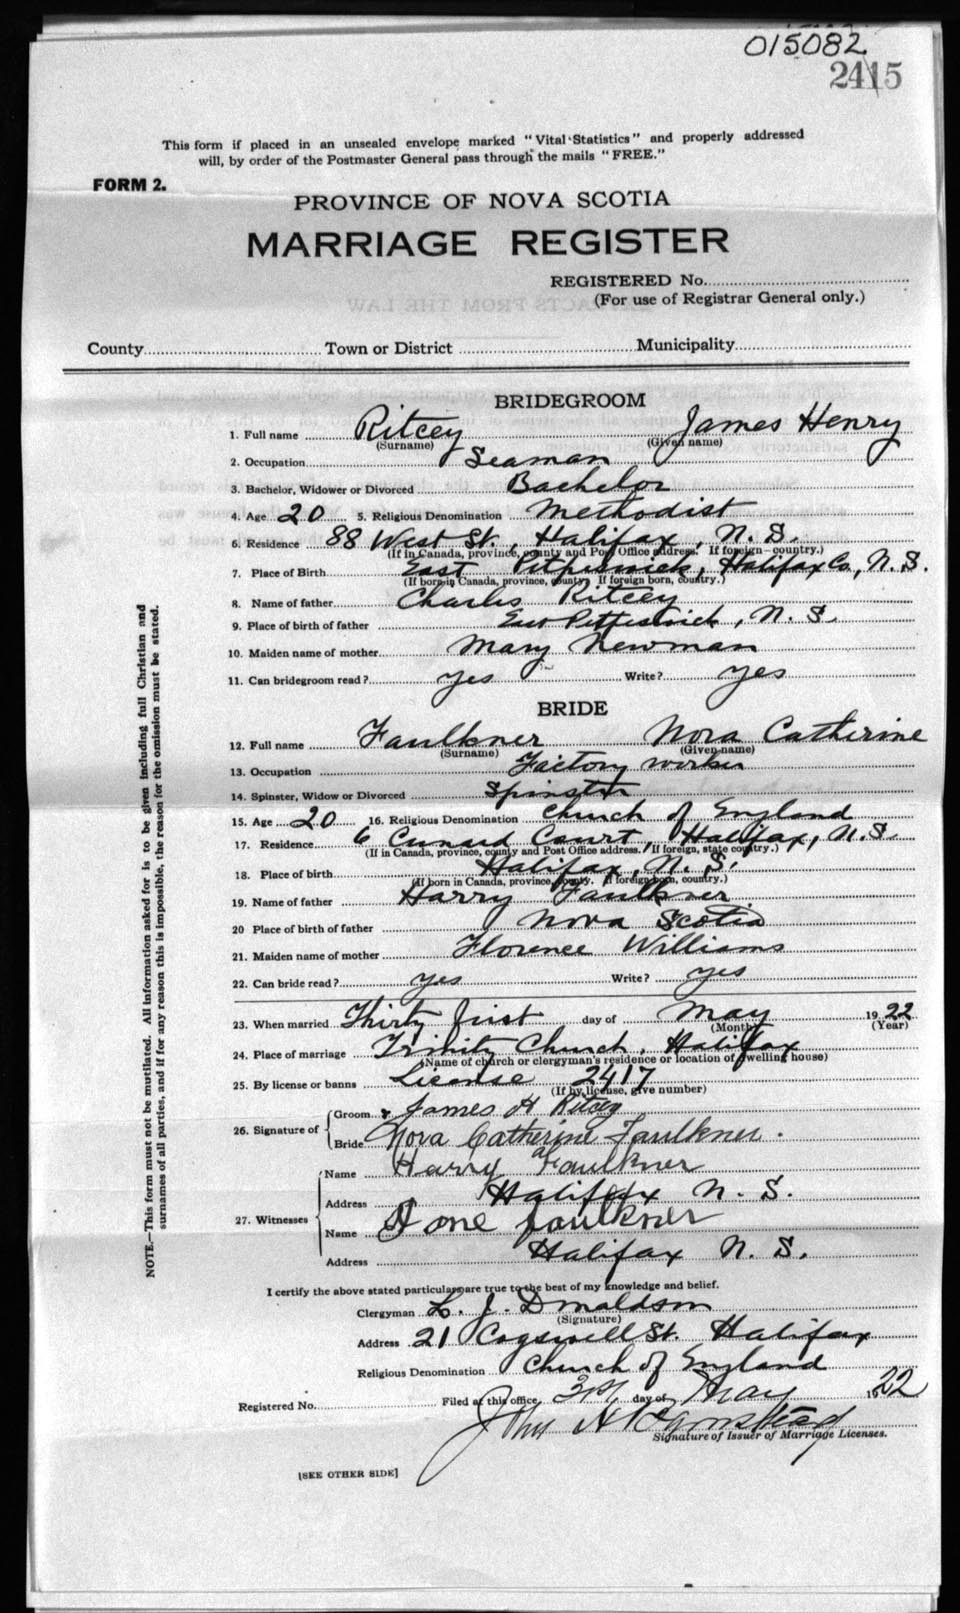 015082
2415
This form if placed in an unsealed envelope marked "Vital Statistics" and properly addressed
will, by order of the Postmaster General pass through the mails "FREE."
FORM 2.
PROVINCE OF NOVA SCOTIA
MARRIAGE REGISTER
REGISTERED No.
(For use of Registrar General only.)
County Town or District Municipality
BRIDEGROOM
1. Full name Ritcey James Henry
(Surname) (Given name)
2. Occupation Seaman
3. Bachelor, Widower or Divorced Bachelor
4. Age 20 5. Religious Denomination Methodist
6. Residence 88 West St., Halifax, N.S.
(If in Canada, province, county and Post Office address. If foreign—country.)
7. Place of Birth East Petpeswick, Halifax Co., N.S.
(If born in Canada, province, county. If foreign born, country.)
8. Name of father Charles Ritcey
9. Place of birth of father East Petpeswick, N.S.
10. Maiden name of mother Mary Newman
11. Can bridegroom read? yes Write? yes
BRIDE
12. Full name Faulkner Nora Catherine
(Surname) (Given name)
13. Occupation Factory worker
14. Spinster, Widow or Divorced Spinster
15. Age 20 16. Religious Denomination Church of England
17. Residence 6 Cunard Court, Halifax, N.S.
(If in Canada, province, county and Post Office address. If foreign, state country.)
18. Place of birth Halifax, N.S.
(If born in Canada, province, county. If foreign born, country.)
19. Name of father Harry Faulkner
20 Place of birth of father Nova Scotia
21. Maiden name of mother Florence Williams
22. Can bride read? yes Write? yes
23. When married Thirty first day of May 1922
(Month) (Year)
24. Place of marriage Trinity Church, Halifax
(Name of church or clergyman's residence or location of dwelling house)
25. By license or banns License 2417
(If by license, give number)
26. Signature of
Groom James H Ritcey
Bride Nora Catherine Faulkner.
27. Witnesses
Name Harry Faulkner
Address Halifax N.S.
Name faulkner
Address Halifax N.S.
I certify the above stated particulars are true to the best of my knowledge and belief.
Clergyman L. J. Donaldson
(Signature)
Address 21 Cogswell St. Halifax
Religious Denomination Church of England
Registered No. Filed at this office, 31st day of May 1922
John
Signature of Issuer of Marriage Licenses.
[SEE OTHER SIDE]
NOTE.—This form must not be mutilated. All information asked for is to be given including full Christian and
surnames of all parties, and if for any reason this is impossible, the reason for the omission must be stated.